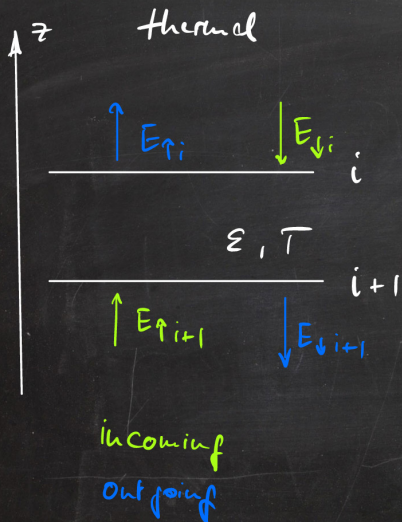 z thermal
E↑i E↓i
i
ε, T
i+1
E↑i+1 E↓i+1
incoming
outgoing